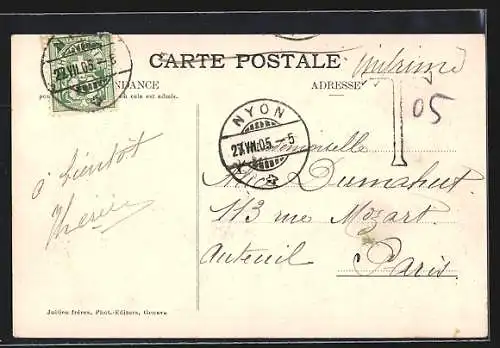 CARTE POSTALE
Imprimé
ADRESSE
NYON
27.VII.05.–5
T 05
à bientôt
Mademoiselle
Dumahut
113 rue Mozart
Auteuil
Paris
Jullien frères, Phot.-Editeurs, Genève